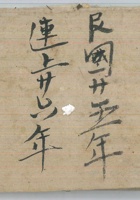 民國廿五年
連上廿六年